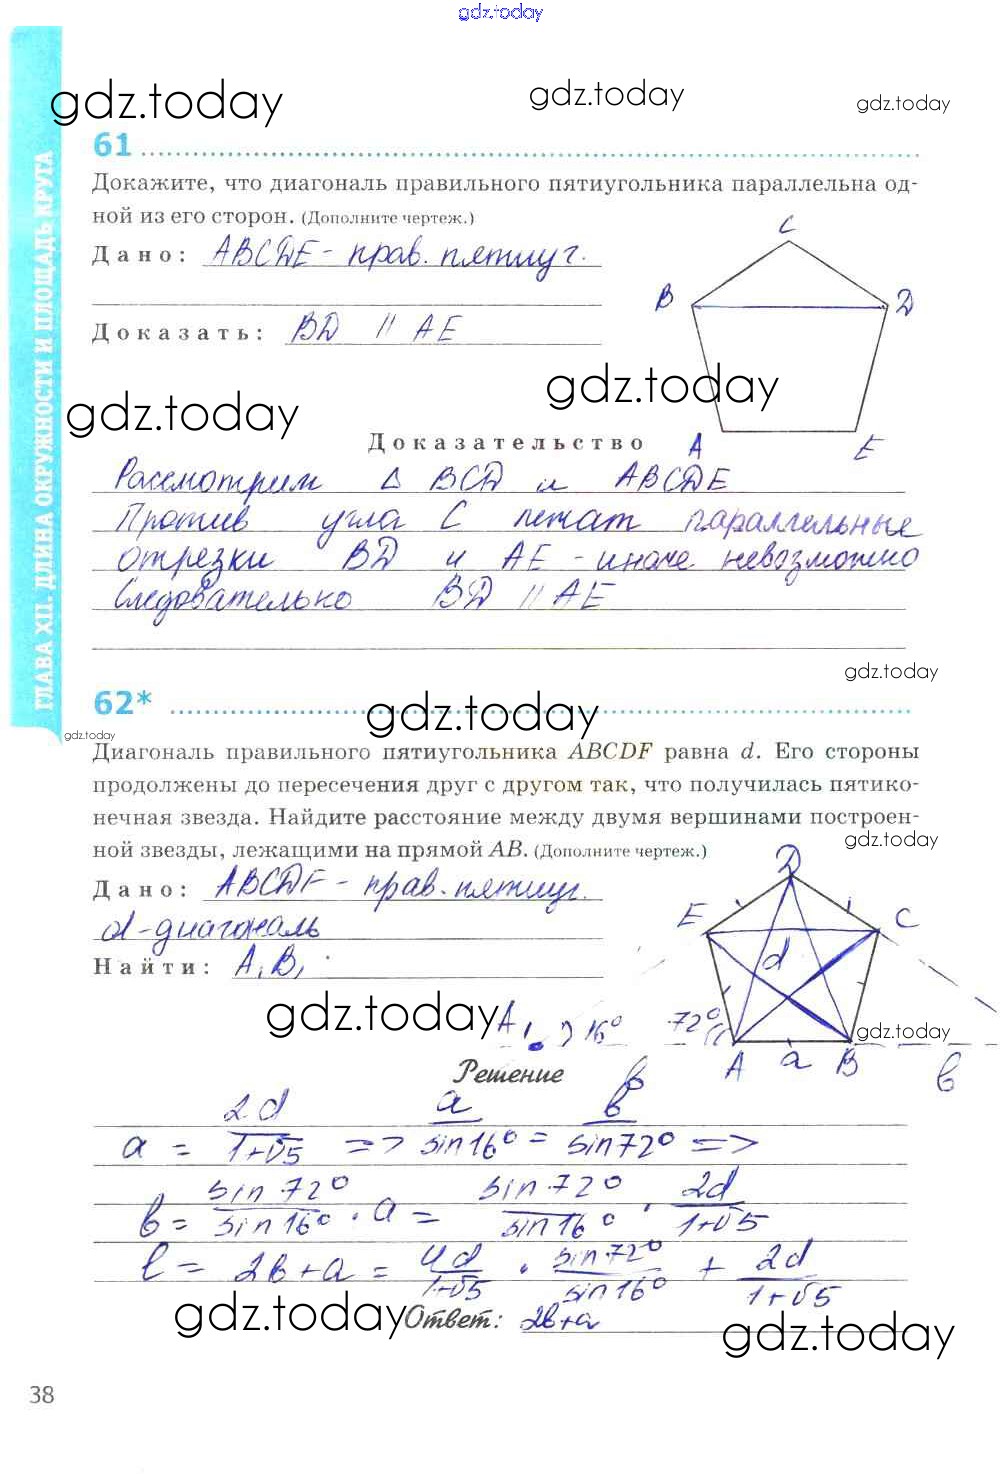 gdz.today
gdz.today
gdz.today
gdz.today
ГЛАВА XII. ДЛИНА ОКРУЖНОСТИ И ПЛОЩАДЬ КРУГА
61
Докажите, что диагональ правильного пятиугольника параллельна од-
ной из его сторон. (Дополните чертеж.)
Дано: ABCDE - прав. пятиуг.
C
B
D
Доказать: BD || AE
gdz.today
gdz.today
Доказательство
A
E
Рассмотрим Δ BCD и ABCDE
Против угла C лежат параллельные
отрезки BD и AE - иначе невозможно
Следовательно BD || AE
gdz.today
62*
gdz.today
gdz.today
Диагональ правильного пятиугольника ABCDF равна d. Его стороны
продолжены до пересечения друг с другом так, что получилась пятико-
нечная звезда. Найдите расстояние между двумя вершинами построен-
ной звезды, лежащими на прямой AB. (Дополните чертеж.)
gdz.today
Дано: ABCDF - прав. пятиуг.
d - диагональ
Найти: A₁B₁
D
E
C
d
gdz.today
A₁
16°
72°
gdz.today
A
a
B
в
Решение
a = 2d / 1+√5 => a / sin16° = в / sin72° =>
в = sin72° / sin16° · a = sin72° / sin16° · 2d / 1+√5
l = 2в+a = 4d / 1+√5 · sin72° / sin16° + 2d / 1+√5
gdz.today
Ответ: 2в+a
gdz.today
38